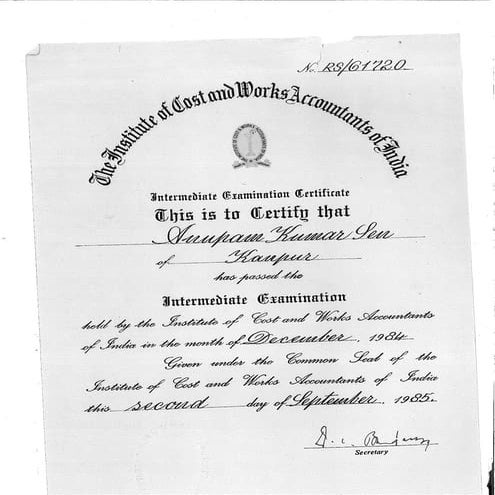 No. RS/61720
The Institute of Cost and Works Accountants of India
Intermediate Examination Certificate
This is to Certify that
Anupam Kumar Sen
of Kanpur
has passed the
Intermediate Examination
held by the Institute of Cost and Works Accountants
of India in the month of December, 1984
Given under the Common Seal of the
Institute of Cost and Works Accountants of India
this second day of September, 1985.
Secretary